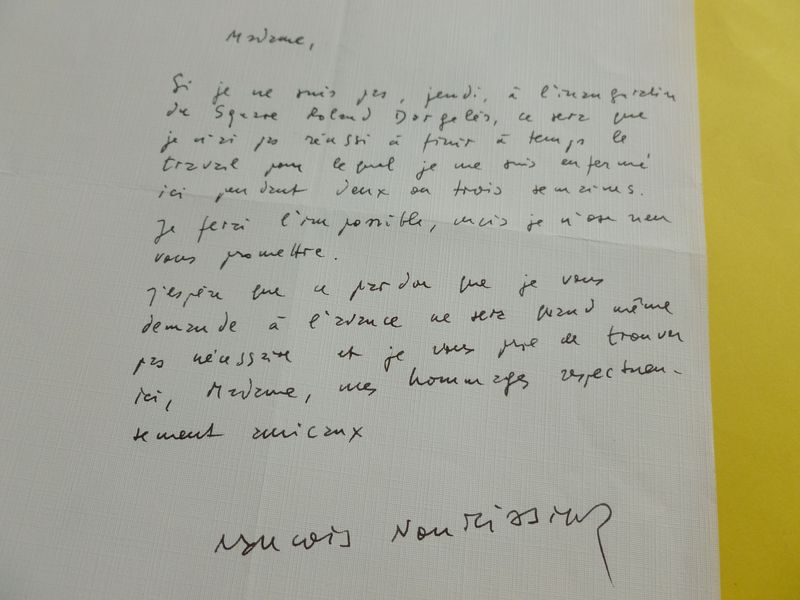 Madame,
Si je ne suis pas, jeudi, à l'inauguration
du Square Roland Dorgelès, ce sera que
je n'ai pas réussi à finir à temps le
travail pour lequel je me suis enfermé
ici pendant deux ou trois semaines.
Je ferai l'impossible, mais je n'ose rien
vous promettre.
J'espère que ce pardon que je vous
demande à l'avance ne sera quand même
pas nécessaire et je vous prie de trouver
ici, Madame, mes hommages respectueu-
sement amicaux
François Nourissier